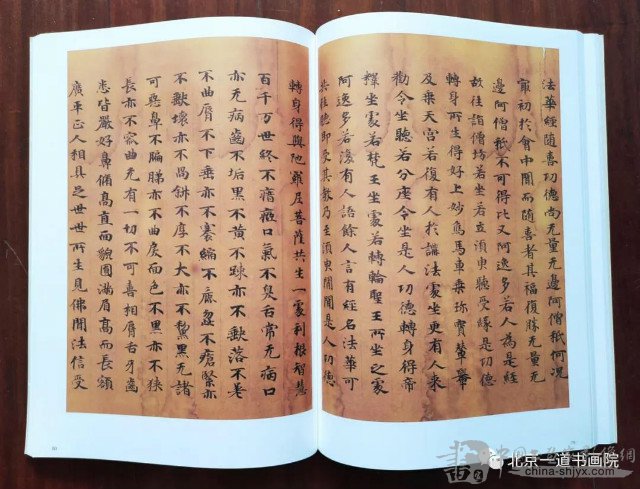 法華經隨喜功德尚无量无邊阿僧秖何況
㝡初於會中聞而隨喜者其福復勝无量无
邊阿僧秖不可得比又阿逸多若人為是經
故往詣僧坊若坐若立須臾聽受緣是功德
轉身所生得好上妙馬車乗珎寶輦轝
及乗天宮若復有人於講法處坐更有人来
勸令坐聽若分座令坐是人功德轉身得帝
釋坐處若梵王坐處若轉輪聖王所坐之處
阿逸多若復有人語餘人言有經名法華可
共往聽即受其教乃至須臾間聞是人功德
轉身得與陁羅尼菩薩共生一處利根智慧
百千万世終不瘖瘂口氣不臭舌常无病口
亦无病齒不垢黑不黄不踈亦不缺落不差
不曲脣不下垂亦不褰縮不麁澁不瘡緊亦
不缺壞亦不喎斜不厚不大亦不黧黑无諸
可惡鼻不匾㔸亦不曲戾面色不黑亦不狹
長亦不窊曲无有一切不可喜相脣舌牙齒
悉皆嚴好鼻脩高直面貌圓滿眉高而長額
廣平正人相具足世世所生見佛聞法信受
北京一道书画院
china-shjyx.com